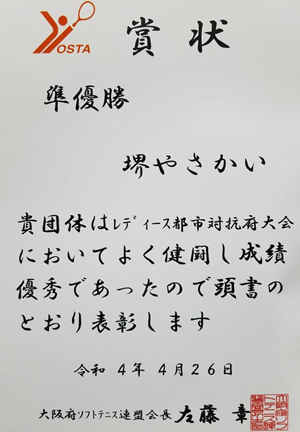 OSTA
賞状
準優勝
堺やさかい
貴団体はﾚﾃﾞｨｰｽ都市対抗府大会
においてよく健闘し成績
優秀であったので頭書の
とおり表彰します
令和 4年 4月26日
大阪府ソフトテニス連盟会長 左藤 章